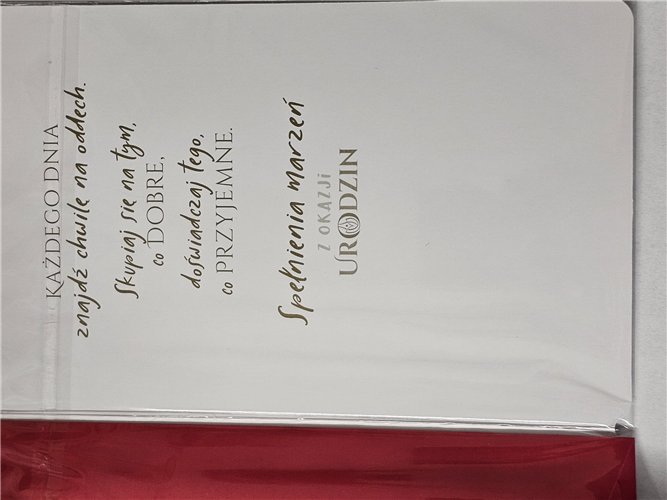 KAŻDEGO DNIA
znajdź chwilę na oddech.
Skupiaj się na tym,
co DOBRE,
doświadczaj tego,
co PRZYJEMNE.
Spełnienia marzeń
Z OKAZJI
URODZIN